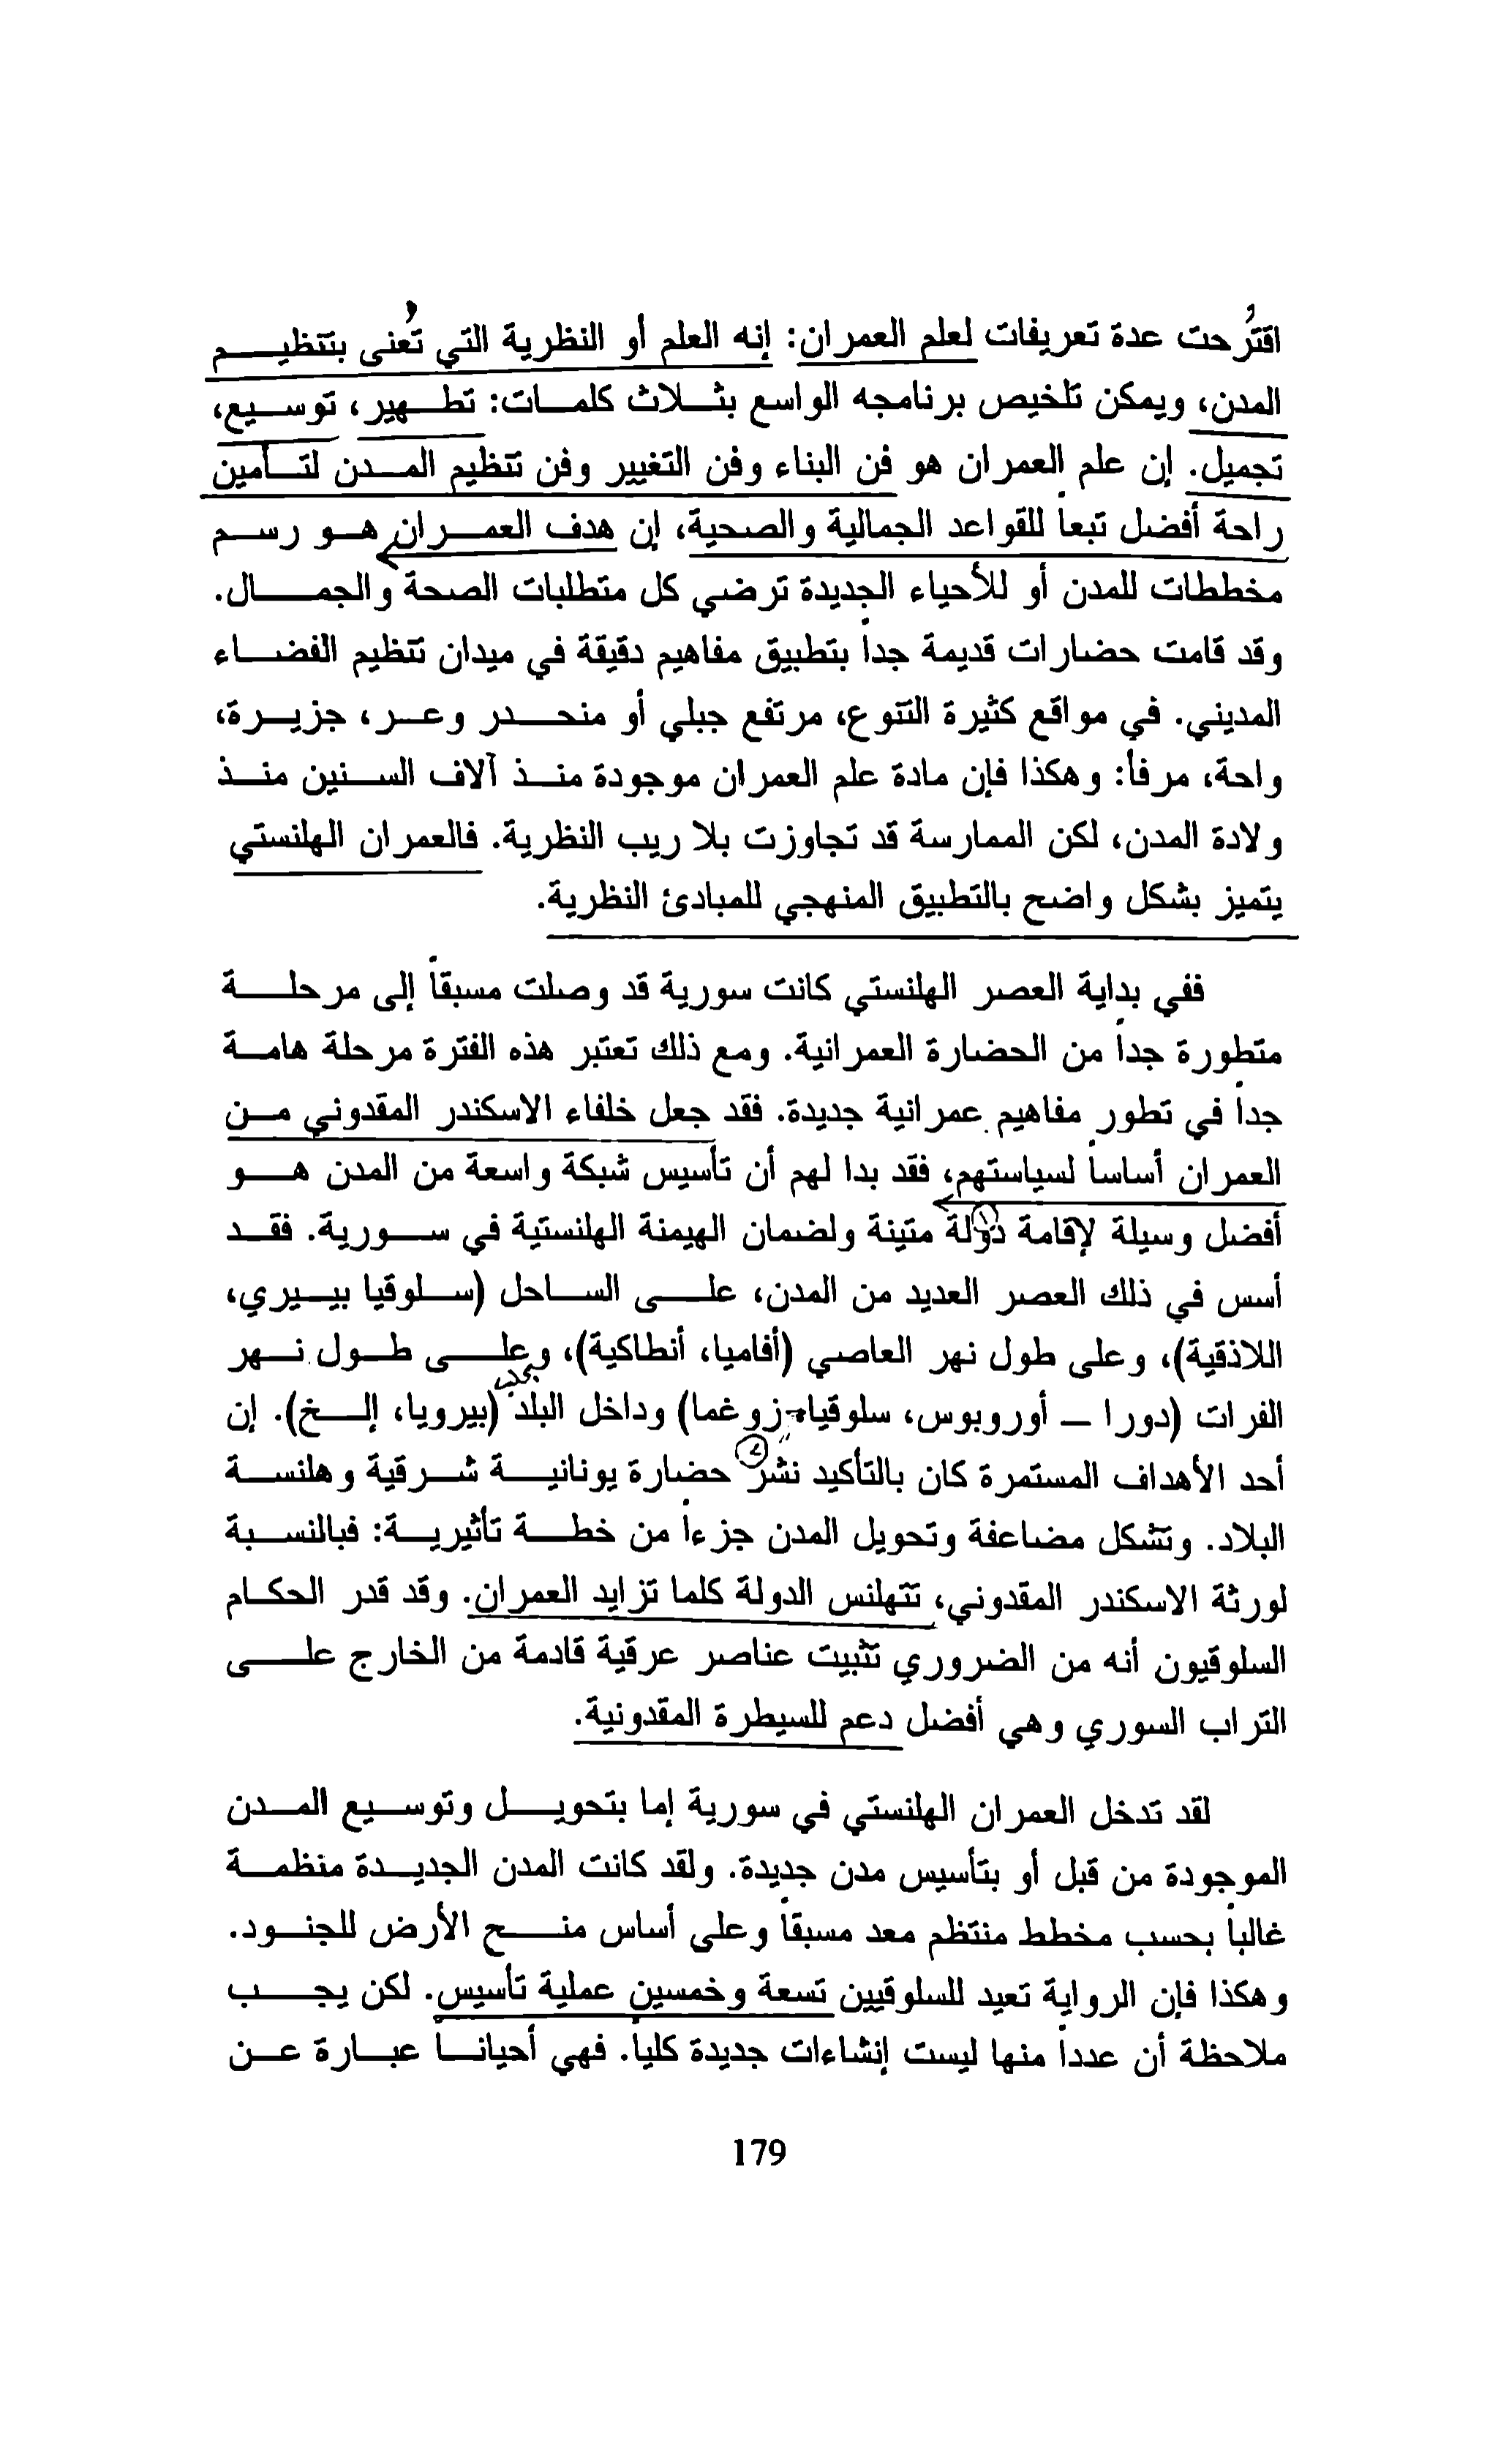 اقتُرحت عدة تعريفات لعلم العمران: إنه العلم أو النظرية التي تُعنى بتنظيم
المدن، ويمكن تلخيص برنامجه الواسع بثلاث كلمات: تطهير، توسيع،
تجميل. إن علم العمران هو فن البناء وفن التغيير وفن تنظيم المدن لتأمين
راحة أفضل تبعاً للقواعد الجمالية والصحية، إن هدف العمران هو رسم
مخططات للمدن أو للأحياء الجديدة ترضي كل متطلبات الصحة والجمال.
وقد قامت حضارات قديمة جداً بتطبيق مفاهيم دقيقة في ميدان تنظيم الفضاء
المديني. في مواقع كثيرة التنوع، مرتفع جبلي أو منحدر وعر، جزيرة،
واحة، مرفأ: وهكذا فإن مادة علم العمران موجودة منذ آلاف السنين منذ
ولادة المدن، لكن الممارسة قد تجاوزت بلا ريب النظرية. فالعمران الهلنستي
يتميز بشكل واضح بالتطبيق المنهجي للمبادئ النظرية.
ففي بداية العصر الهلنستي كانت سورية قد وصلت مسبقاً إلى مرحلة
متطورة جداً من الحضارة العمرانية. ومع ذلك تعتبر هذه الفترة مرحلة هامة
جداً في تطور مفاهيم عمرانية جديدة. فقد جعل خلفاء الاسكندر المقدوني من
العمران أساساً لسياستهم، فقد بدا لهم أن تأسيس شبكة واسعة من المدن هو
أفضل وسيلة لإقامة دولة متينة ولضمان الهيمنة الهلنستية في سورية. فقد
أسس في ذلك العصر العديد من المدن، على الساحل (سلوقيا بييري،
اللاذقية)، وعلى طول نهر العاصي (أفاميا، أنطاكية)، وعلى طول نهر
الفرات (دورا – أوروبوس، سلوقيا-زوغما) وداخل البلد (بيرويا، إلخ). إن
أحد الأهداف المستمرة كان بالتأكيد نشر حضارة يونانية شرقية وهلنسة
البلاد. وتشكل مضاعفة وتحويل المدن جزءاً من خطة تأثيرية: فبالنسبة
لورثة الاسكندر المقدوني، تتهلنس الدولة كلما تزايد العمران. وقد قدر الحكام
السلوقيون أنه من الضروري تثبيت عناصر عرقية قادمة من الخارج على
التراب السوري وهي أفضل دعم للسيطرة المقدونية.
لقد تدخل العمران الهلنستي في سورية إما بتحويل وتوسيع المدن
الموجودة من قبل أو بتأسيس مدن جديدة. ولقد كانت المدن الجديدة منظمة
غالباً بحسب مخطط منتظم معد مسبقاً وعلى أساس منح الأرض للجنود.
وهكذا فإن الرواية تعيد للسلوقيين تسعة وخمسين عملية تأسيس. لكن يجب
ملاحظة أن عدداً منها ليست إنشاءات جديدة كلياً. فهي أحياناً عبارة عن
179